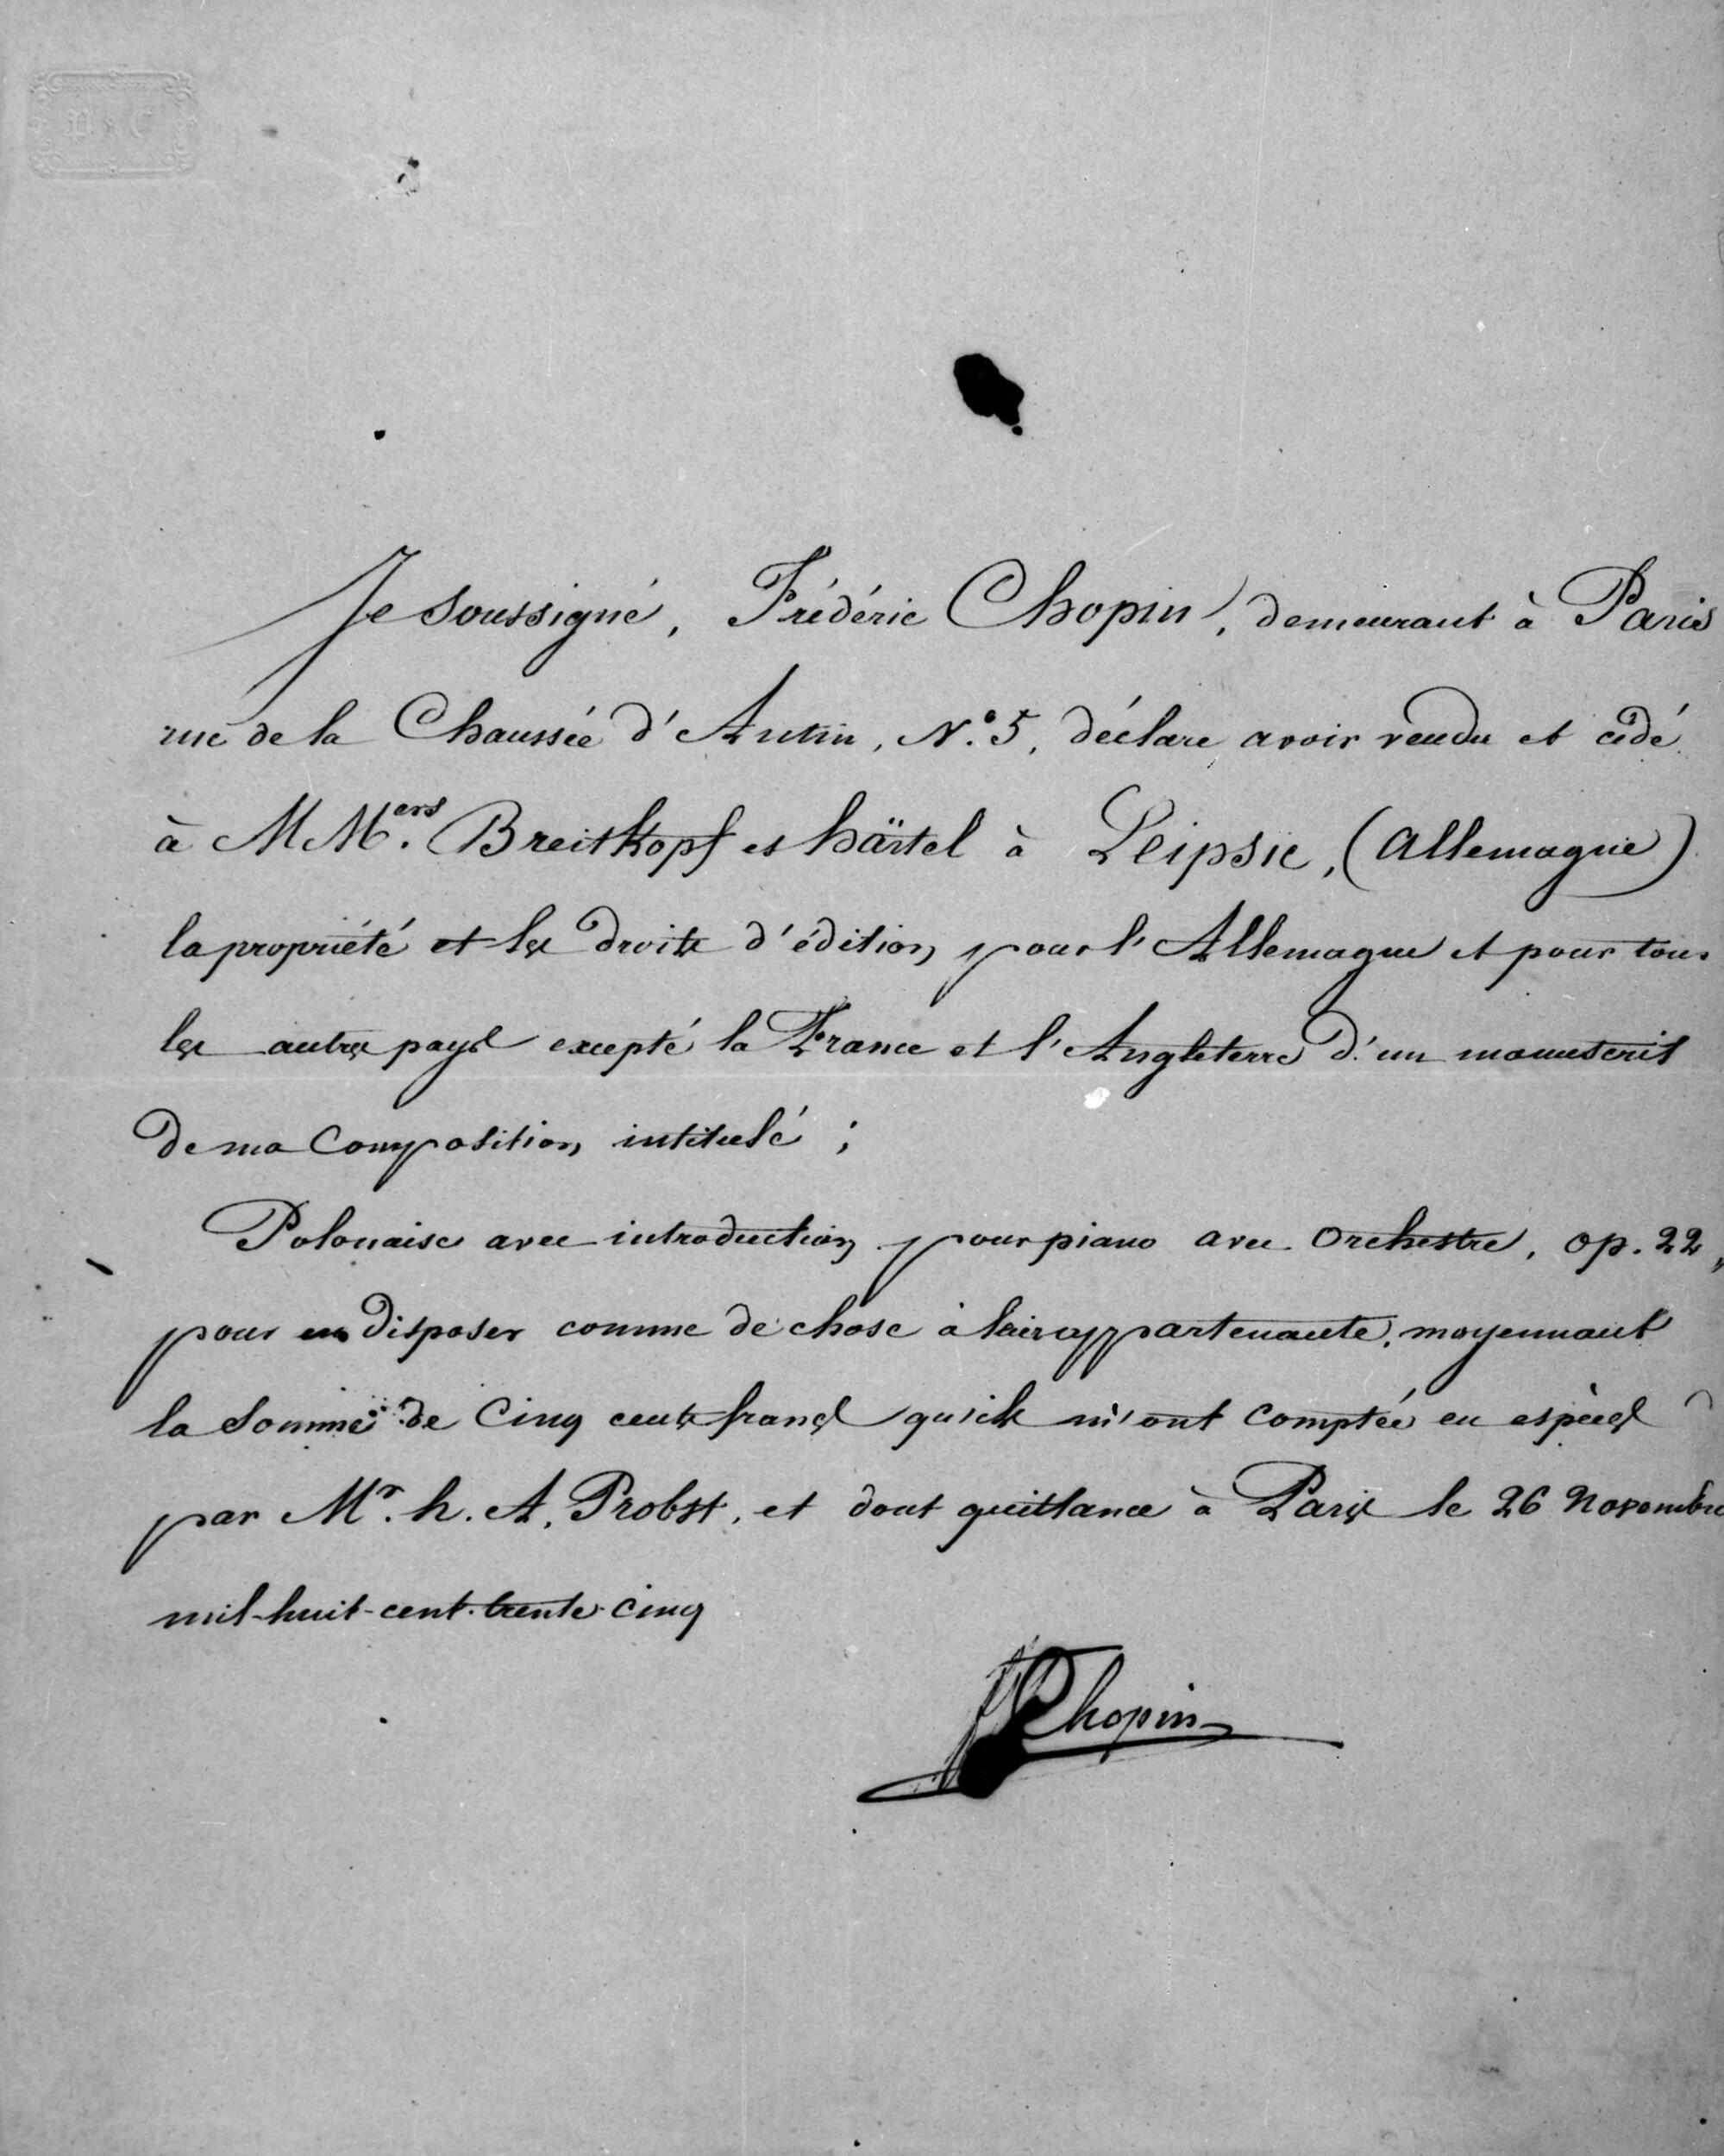 Je soussigné, Frédéric Chopin, demeurant à Paris
rue de la Chaussée d'Antin, N.° 5, déclare avoir vendu et cédé
à MM.ers Breitkopf et härtel à Leipsic, (Allemagne)
la propriété et les droits d'édition pour l'Allemagne et pour tous
les autres pays excepté la France et l'Angleterre d'un manuscrit
de ma Composition intitulé ;
Polonaise avec introduction pour piano avec Orchestre, op. 22,
pour en disposer comme de chose à leur appartenante, moyennant
la Somme de Cinq cents francs qu'ils m'ont comptée en espèces
par Mr. h. A. Probst, et dont quittance à Paris le 26 Novembre
mil-huit-cent-trente-cinq
FChopin